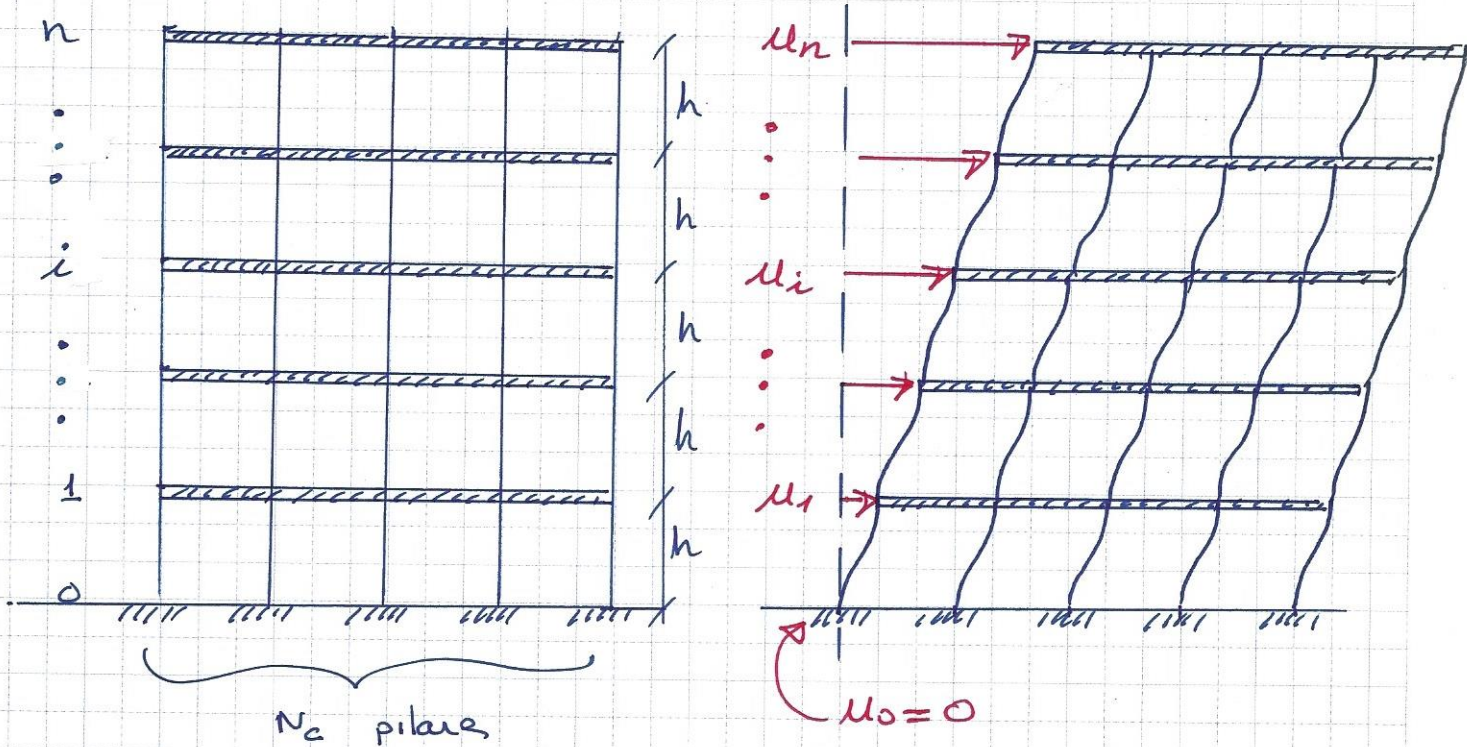 n
i
1
0
h
h
h
h
h
N_c pilares
u_n
u_i
u_1
u_0 = 0